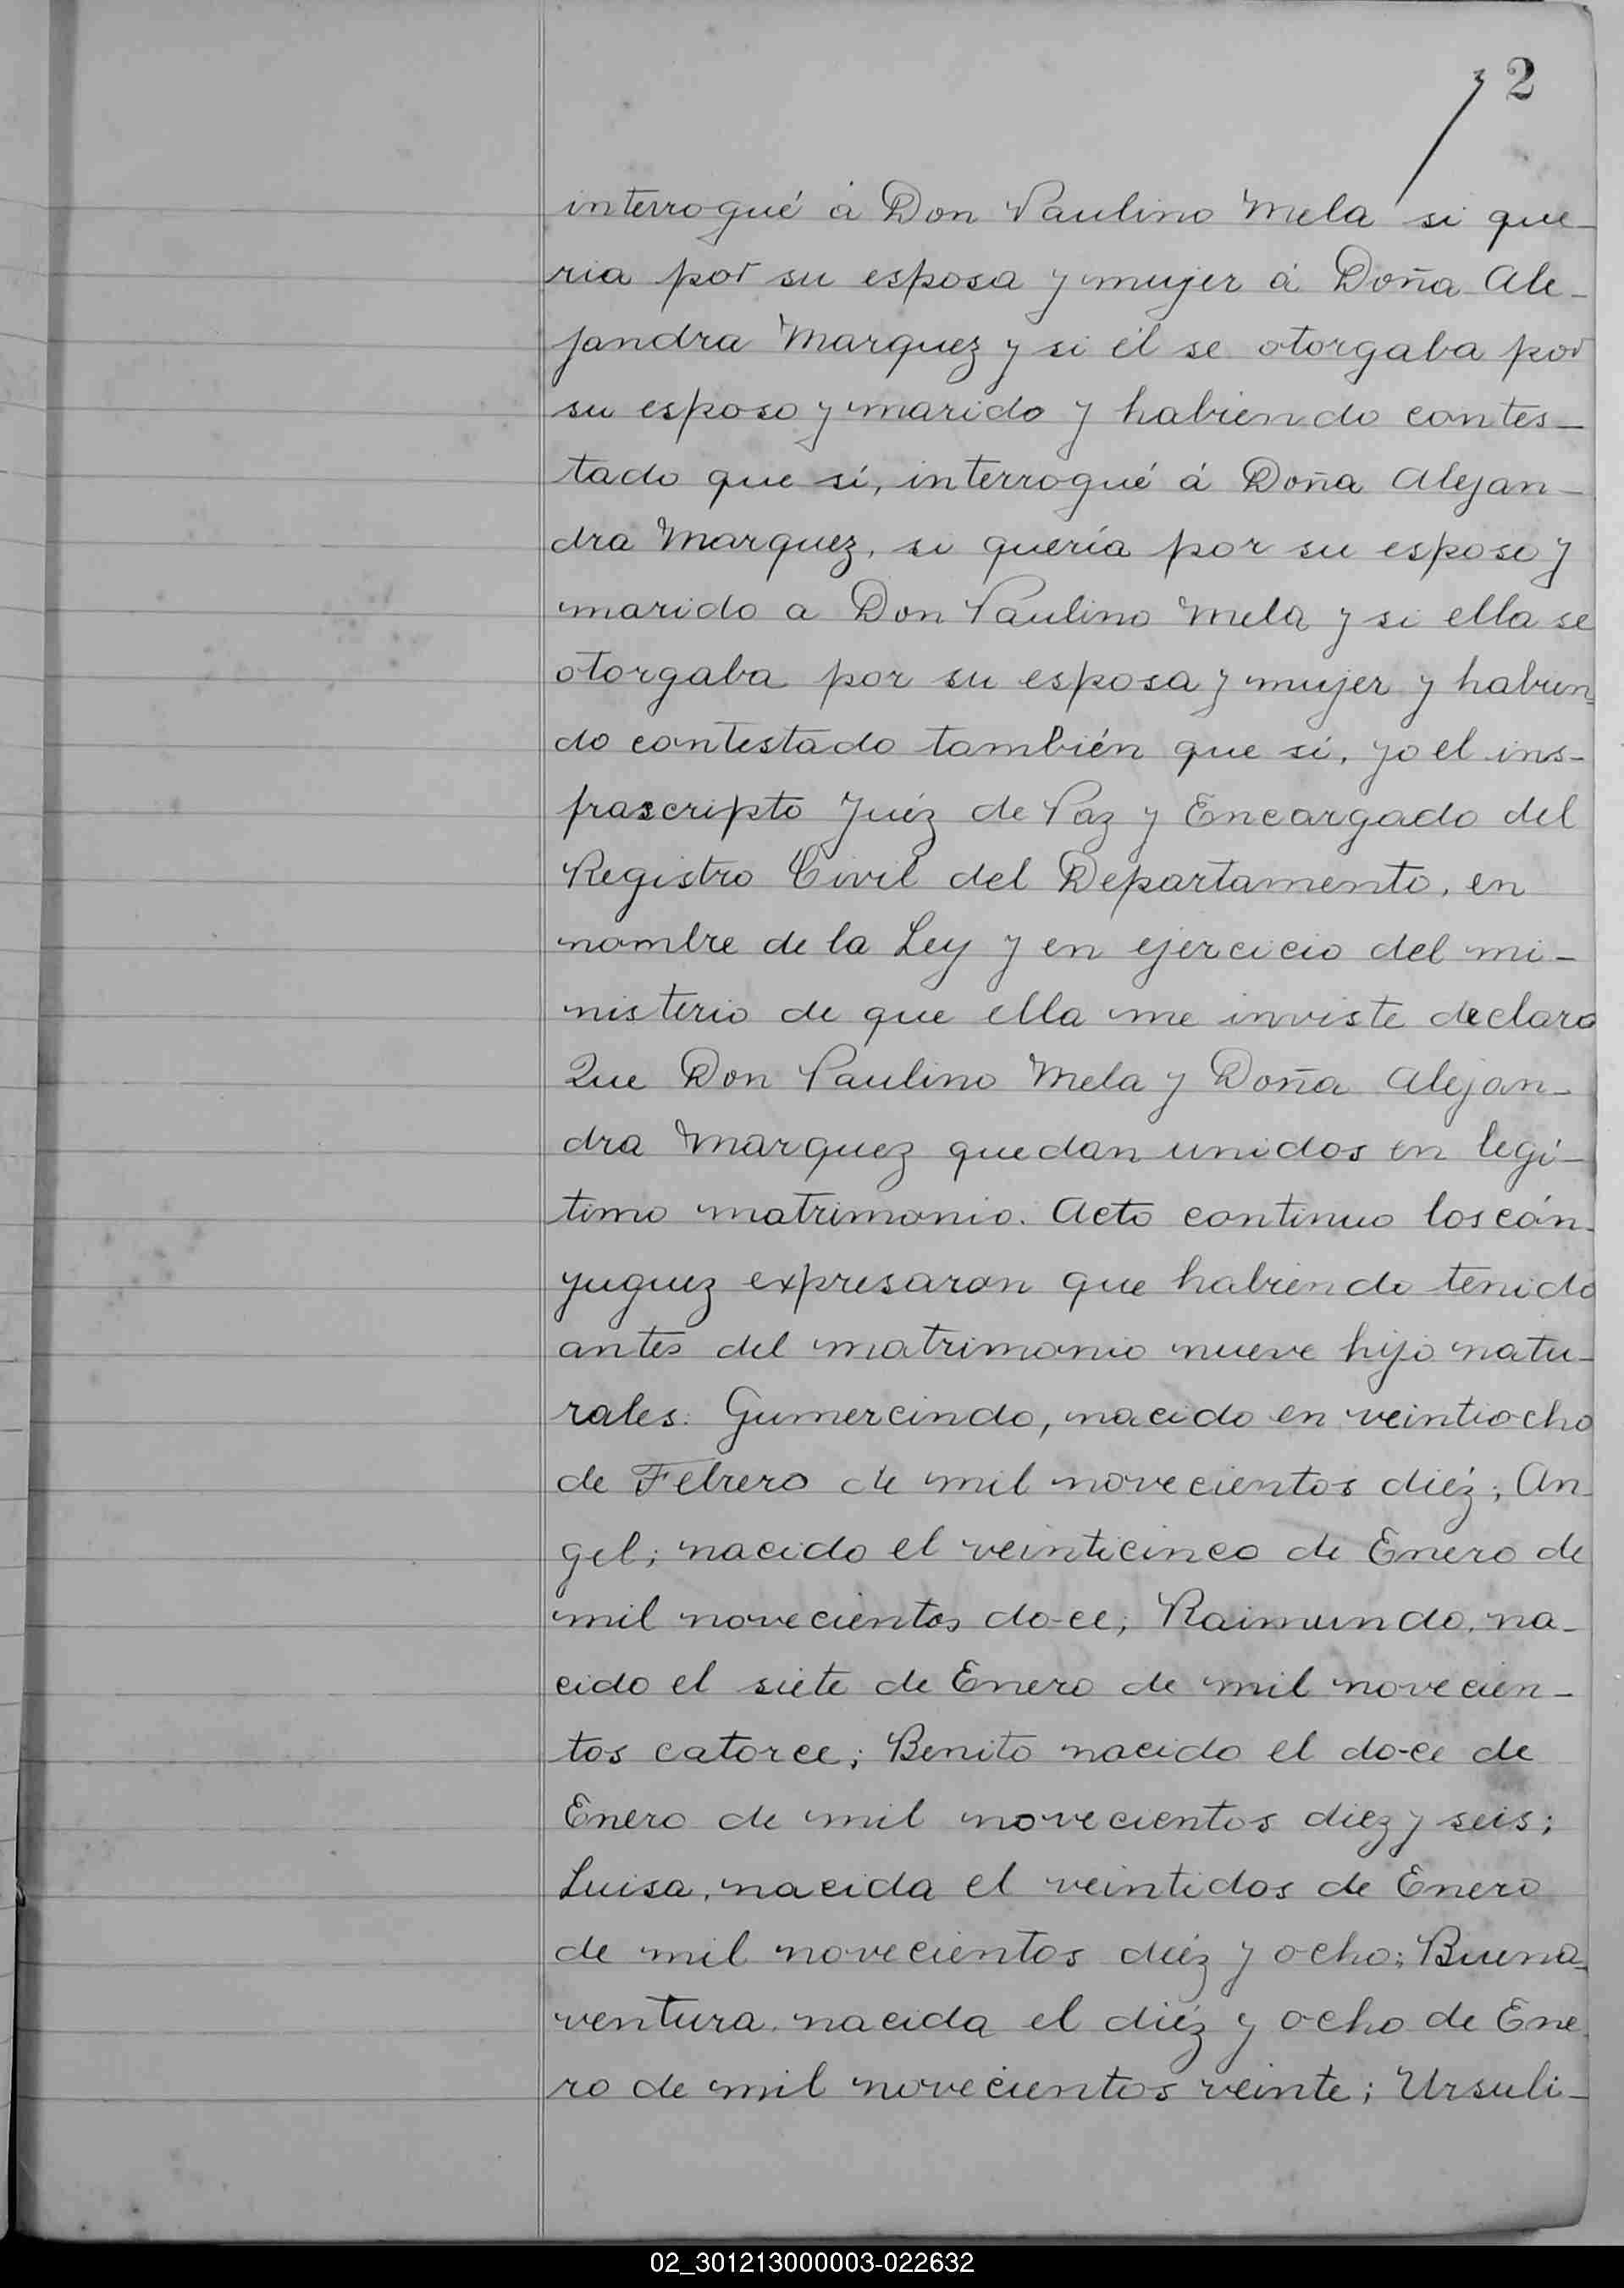 2
interrogué á Don Paulino Mela si que-
ria por su esposa y mujer á Doña Ale-
jandra Marquez y si él se otorgaba por
su esposo y marido y habiendo contes-
tado que sí, interrogué á Doña Alejan-
dra Marquez, si quería por su esposo y
marido a Don Paulino Mela y si ella se
otorgaba por su esposa y mujer y habien-
do contestado también que sí, yo el ins-
frascripto Juéz de Paz y Encargado del
Registro Civil del Departamento, en
nombre de la Ley y en ejercicio del mi-
nisterio de que ella me inviste declaro
Que Don Paulino Mela y Doña Alejan-
dra Marquez quedan unidos en legí-
timo matrimonio. Acto continuo los cón-
yuguez expresaron que habiendo tenido
antes del matrimonio nueve hijo natu-
rales: Gumercindo, nacido en veintiocho
de Febrero de mil novecientos diéz; An-
gel; nacido el veinticinco de Enero de
mil novecientos do-ce; Raimundo, na-
cido el siete de Enero de mil novecien-
tos catorce; Benito nacido el do-ce de
Enero de mil novecientos diez y seis;
Luisa, nacida el veintidos de Enero
de mil novecientos diéz y ocho; Buena-
ventura, nacida el diéz y ocho de Ene-
ro de mil novecientos veinte; Ursuli-
02_301213000003-022632